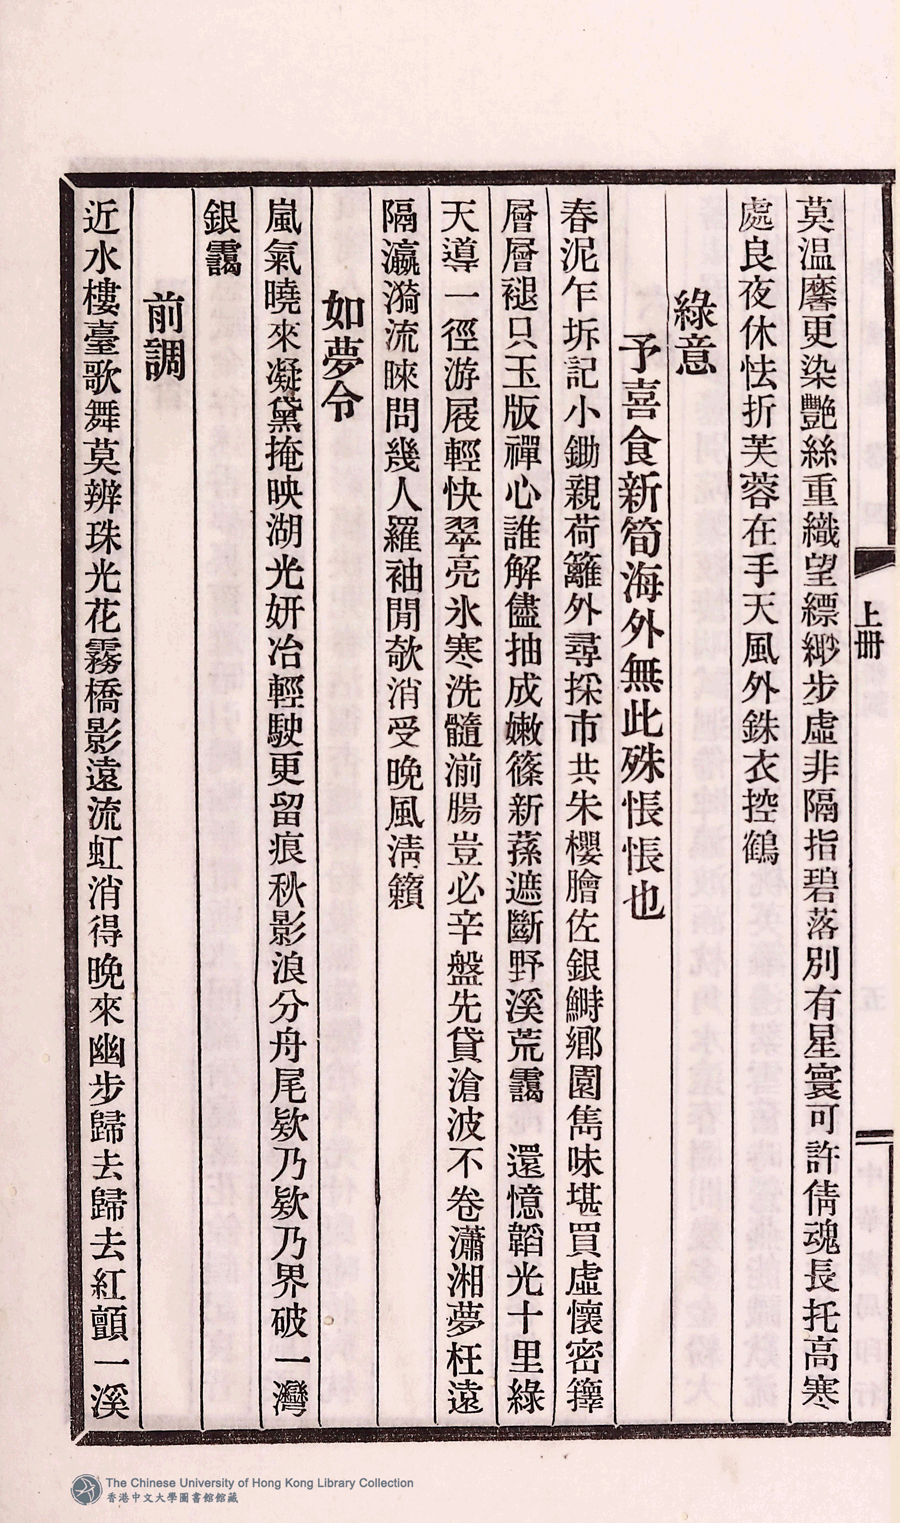 莫温麐更染艷絲重織望縹緲步虛非隔指碧落別有星寰可許倩魂長托高寒
處良夜休怯折芙蓉在手天風外銖衣控鶴
綠意
予喜食新筍海外無此殊悵悵也
春泥乍坼記小鋤親荷籬外尋採市共朱櫻膾佐銀鰣鄉園雋味堪買虛懷密籜
層層褪只玉版禪心誰解儘抽成嫩篠新蓀遮斷野溪荒靄 還憶韜光十里綠
天導一徑游屐輕快翠亮氷寒洗髓湔腸豈必辛盤先貸滄波不卷瀟湘夢枉遠
隔瀛漪流睞問幾人羅袖閒欹消受晚風淸籟
如夢令
嵐氣曉來凝黛掩映湖光妍冶輕駛更留痕秋影浪分舟尾欸乃欸乃界破一灣
銀靄
前調
近水樓臺歌舞莫辨珠光花霧橋影遠流虹消得晚來幽步歸去歸去紅顫一溪
上冊
五
中華書局印行
The Chinese University of Hong Kong Library Collection
香港中文大學圖書館館藏